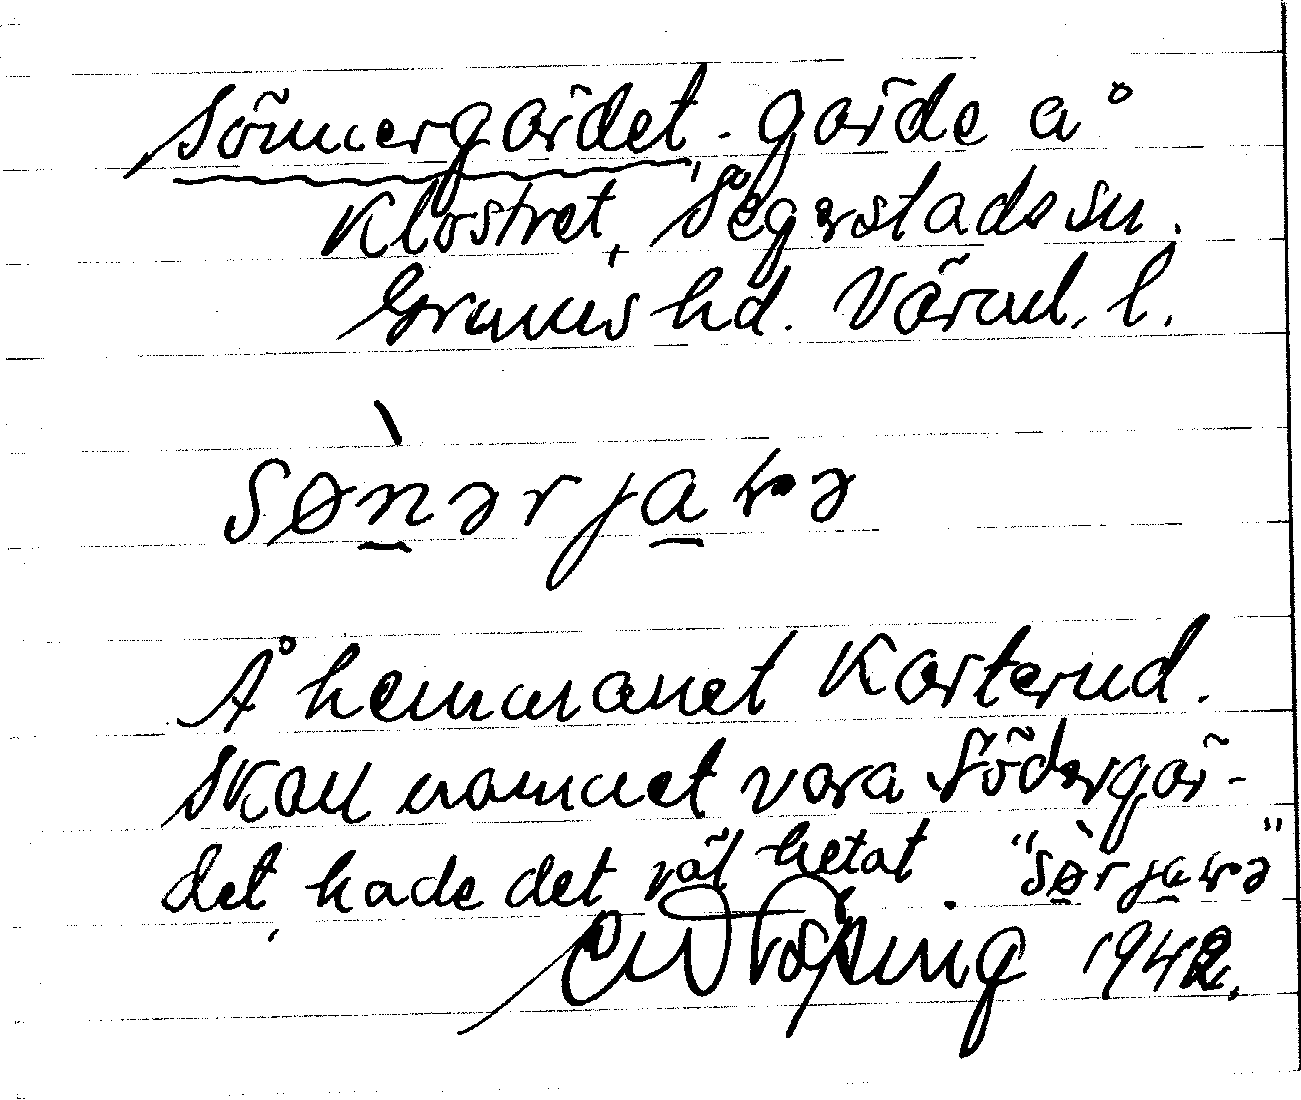 Sönnergärdet - gärde å
Klostret, Segerstads sn.
Grums hd. Värml. l.
sønərjaɽə
Å hemmanet Karterud.
Skall namnet vara Södergär-
det, hade det väl hetat "sørjaɽə".
1942.